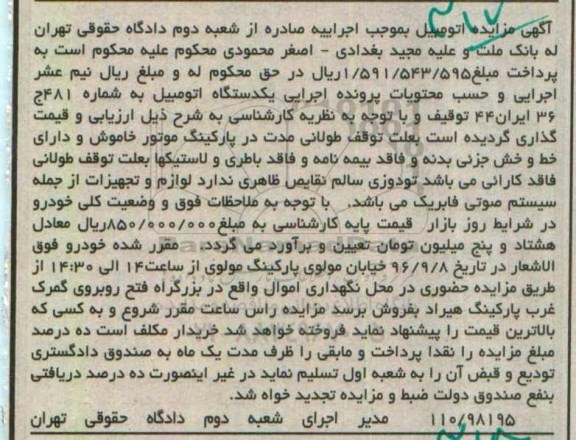 ۳۱۷
آگهی مزایده اتومبیل بموجب اجراییه صادره از شعبه دوم دادگاه حقوقی تهران
له بانک ملت و علیه مجید بغدادی - اصغر محمودی محکوم علیه محکوم است به
پرداخت مبلغ۱/۵۹۱/۵۴۳/۵۹۵ریال در حق محکوم له و مبلغ ریال نیم عشر
اجرایی و حسب محتویات پرونده اجرایی یکدستگاه اتومبیل به شماره ۴۸۱ج
۳۶ ایران۴۴ توقیف و با توجه به نظریه کارشناسی به شرح ذیل ارزیابی و قیمت
گذاری گردیده است بعلت توقف طولانی مدت در پارکینگ موتور خاموش و دارای
خط و خش جزئی بدنه و فاقد بیمه نامه و فاقد باطری و لاستیکها بعلت توقف طولانی
فاقد کارائی می باشد تودوزی سالم نقایص ظاهری ندارد لوازم و تجهیزات از جمله
سیستم صوتی فابریک می باشد. با توجه به ملاحظات فوق و وضعیت کلی خودرو
در شرایط روز بازار قیمت پایه کارشناسی به مبلغ۸۵۰/۰۰۰/۰۰۰ریال معادل
هشتاد و پنج میلیون تومان تعیین و برآورد می گردد. مقرر شده خودرو فوق
الاشعار در تاریخ ۹۶/۹/۸ خیابان مولوی پارکینگ مولوی از ساعت۱۴ الی ۱۴:۳۰ از
طریق مزایده حضوری در محل نگهداری اموال واقع در بزرگراه فتح روبروی گمرک
غرب پارکینگ هیراد بفروش برسد مزایده راس ساعت مقرر شروع و به کسی که
بالاترین قیمت را پیشنهاد نماید فروخته خواهد شد خریدار مکلف است ده درصد
مبلغ مزایده را نقدا پرداخت و مابقی را ظرف مدت یک ماه به صندوق دادگستری
تودیع و قبض آن را به شعبه اول تسلیم نماید در غیر اینصورت ده درصد دریافتی
بنفع صندوق دولت ضبط و مزایده تجدید خواه شد.
۱۱۰/۹۸۱۹۵ مدیر اجرای شعبه دوم دادگاه حقوقی تهران